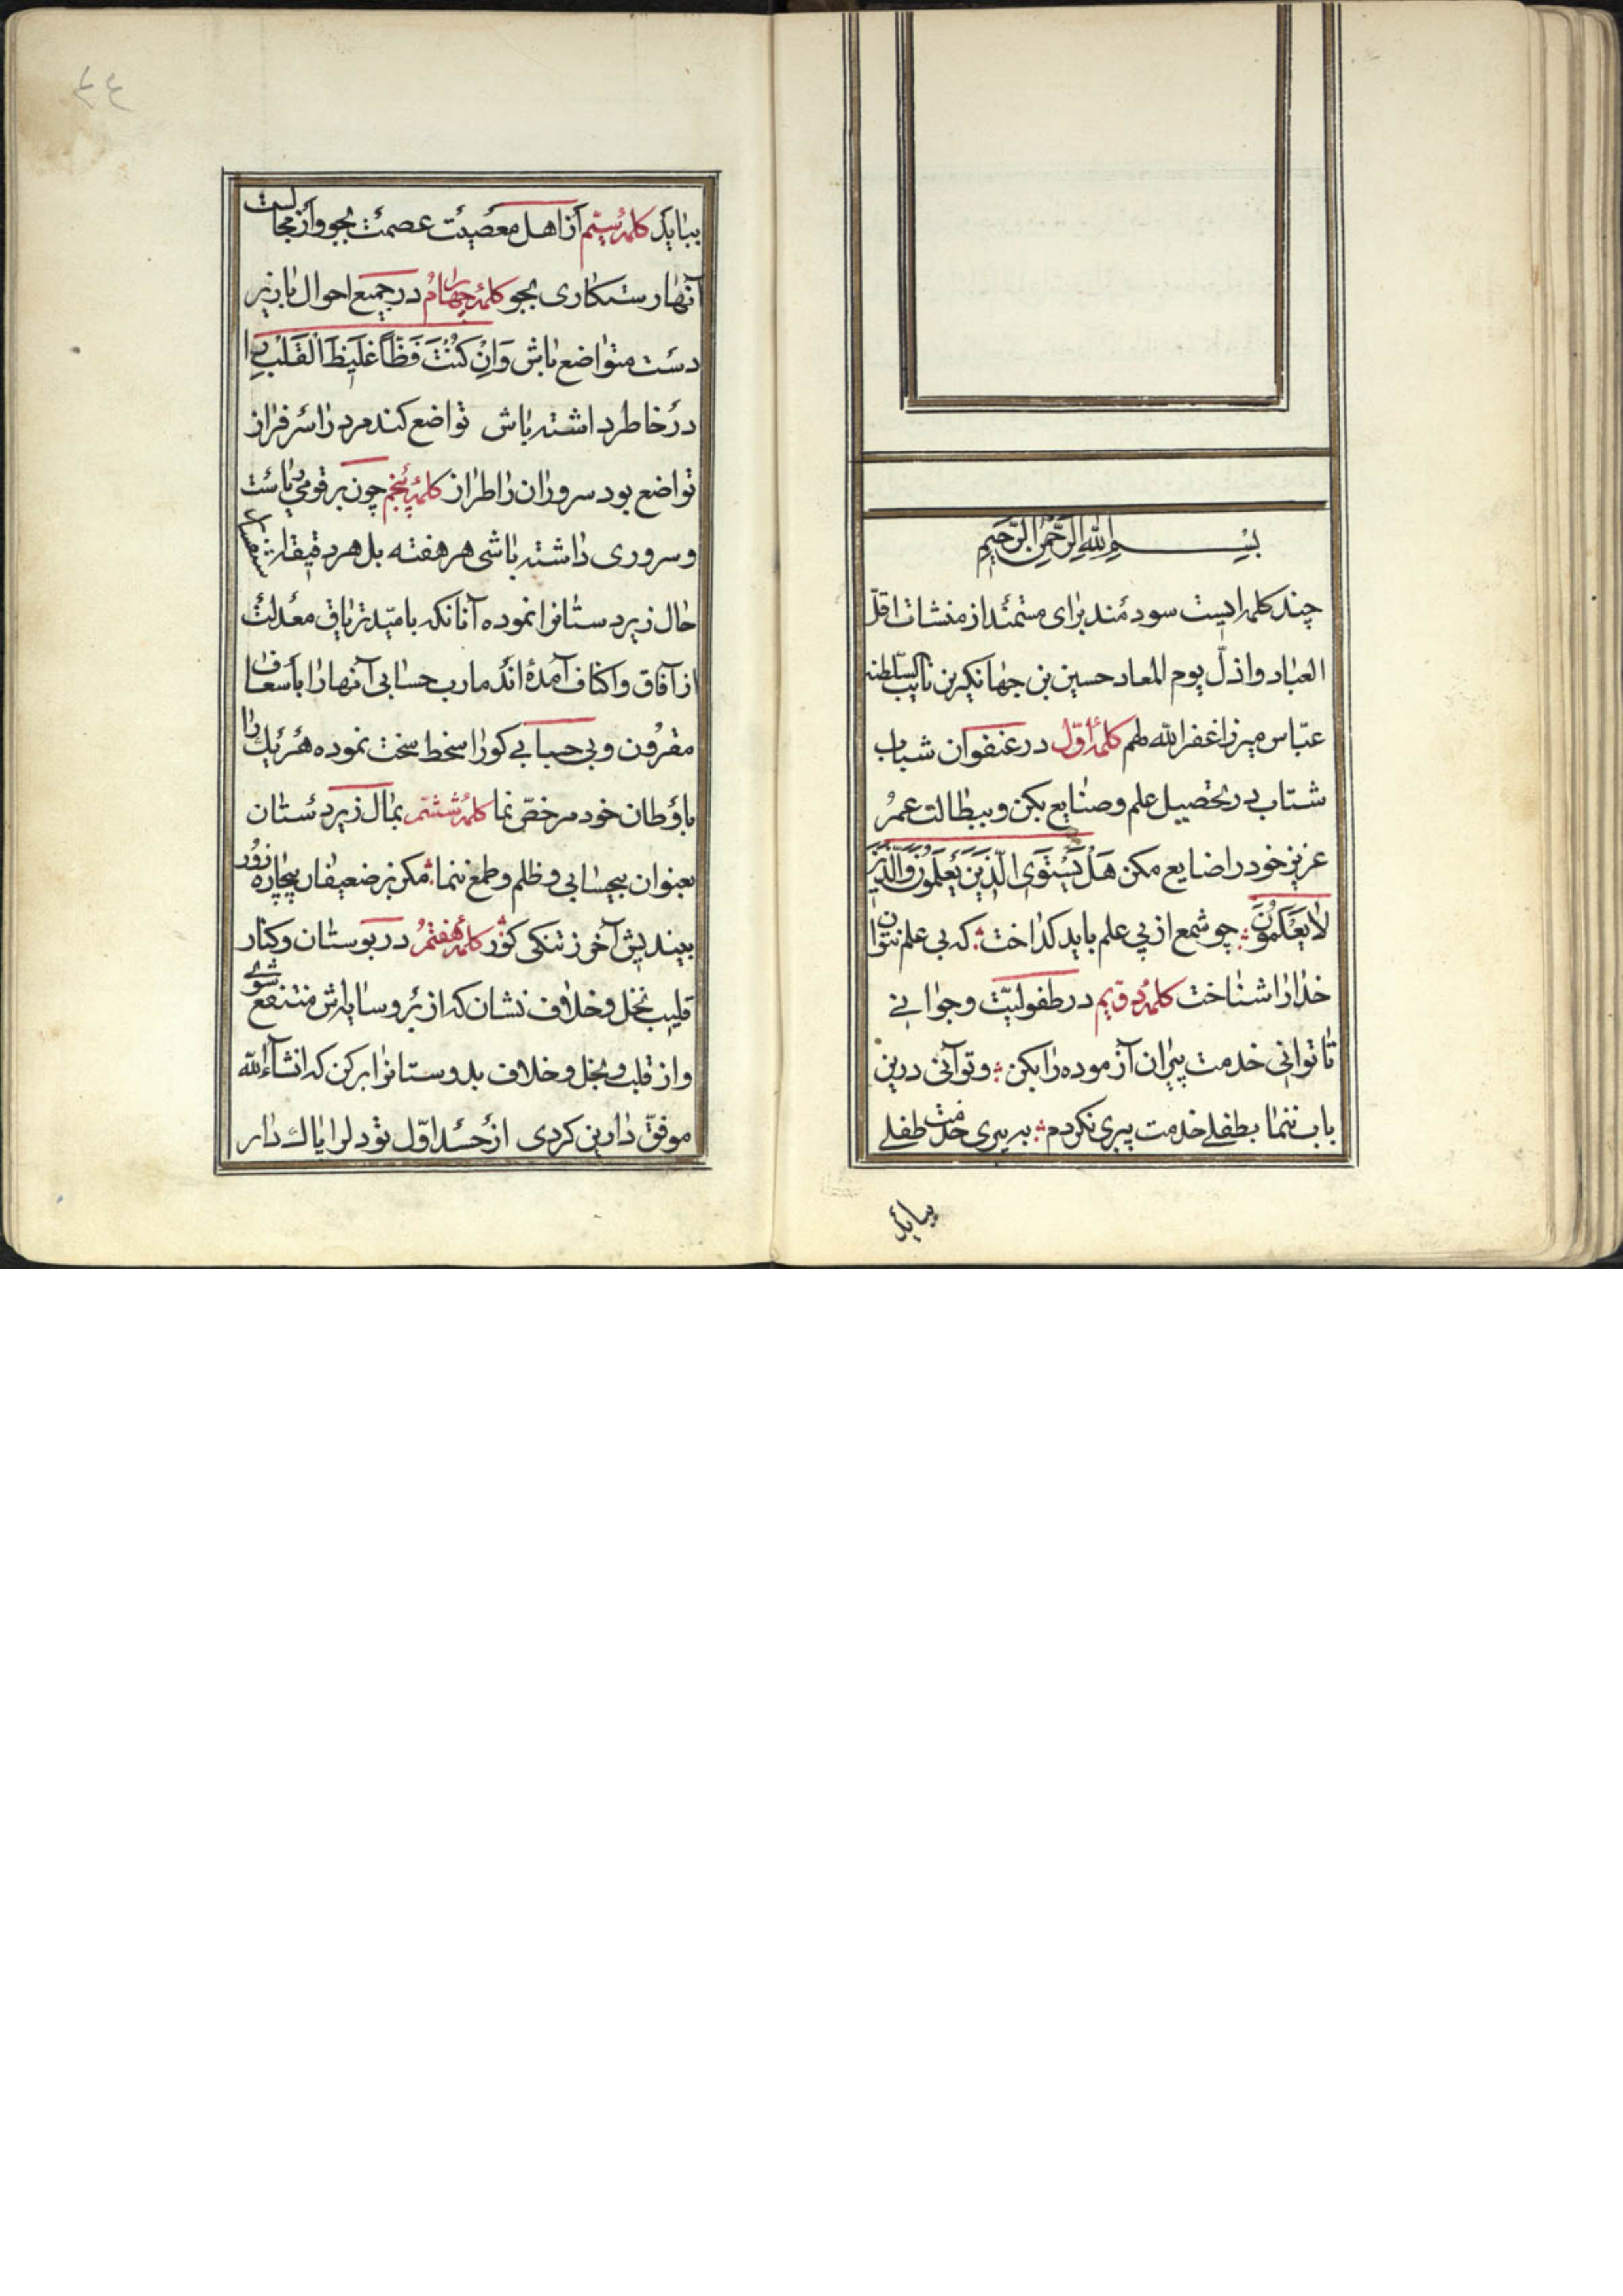 بسم الله الرحمن الرحیم
چند کلمه ایست سودمند برای مستمند از منشات اقلّ
العباد واذلّ یوم المعاد حسین بن جهانکیر بن نایب السلطنه
عبّاس میرزا غفرالله لهم کلمهٔ اوّل در عنفوان شباب
شتاب در تحصیل علم و صنایع بکن و ببطالت عمر
عزیز خود را ضایع مکن هَلْ یَسْتَوَی الّذینَ یَعْلَمُونَ وَالَّذینَ
لا یَعْلَمُونَ چو شمع از پی علم باید کداخت که بی علم نتوان
خدا را شناخت کلمهٔ دویم در طفولیّت و جوانے
تا توانی خدمت پیران آزموده را بکن و توآنی درین
باب ننما بطفلے خدمت پیری نکردم به پیری خدمت طفلے
بیاید
٤٤
بباید کلمهٔ سیّم از اهل معصیت عصمت بجو و از مجالست
آنها رستکاری بجو کلمهٔ چهارم در جمیع احوال با زیر
دست متواضع باش وَاِنْ کُنْتَ فَظّاً غَلیظَ الْقَلْبِ را
در خاطر داشته باش تواضع کند مرد را سرفراز
تواضع بود سروران را طراز کلمهٔ پنجم چون بر قومی ریاست
و سروری داشته باشی هر هفته بل هر دقیقه
حال زیردستانرا نموده آنانکه بامیّد تریاق معدلت
از آفاق و اکناف آمدهٔ اند مارب حسابی آنها را باسعاف
مقرون و بی حسابے کو را سخط سخت نموده هر یک را
باوطان خود مرخصّ نما کلمهٔ ششم بمال زیردستان
بعنوان بیحسابی و ظلم و طمع ننما مکن بر ضعیفان بیچاره زور
بیندیش آخر ز تنکی کور کلمهٔ هفتم در بوستان و کنار
قلیب نخل و خلاف نشان که از بر و سایه اش منتفع شوی
و از قلب و بخل و خلاف بد دوستانرا بر کن که انشاءالله
موفقّ دارین کردی از حسد اوّل تو دل را پاک دار